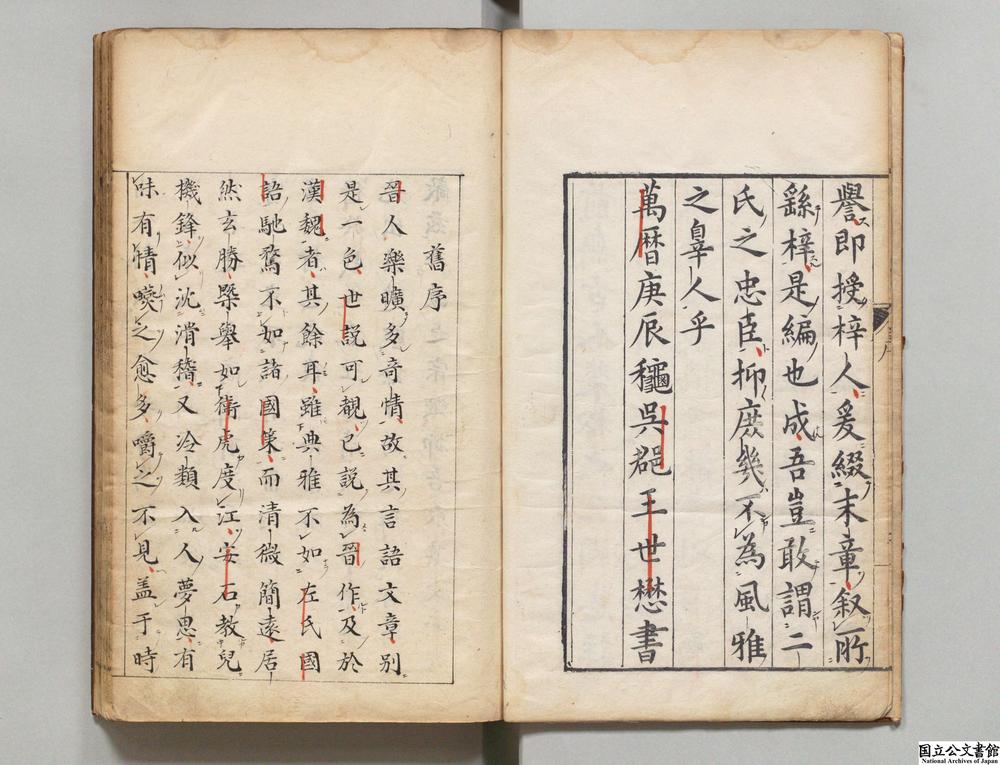 譽即授梓人爰綴末章叙所
繇梓是編也成吾豈敢謂二
氏之忠臣抑庶幾不為風雅
之辠人乎
萬曆庚辰龝吳郡王世懋書
舊序
晉人樂曠多奇情故其言語文章別
是一色世説可覩已説為晉作及於
漢魏者其餘耳雖典雅不如左氏國
語馳騖不如諸國策而清微簡遠居
然玄勝槩舉如衛虎度江安石教兒
機鋒似沈滑稽又冷類入人夢思有
味有情嚥之愈多嚼之不見盖于時
国立公文書館
National Archives of Japan